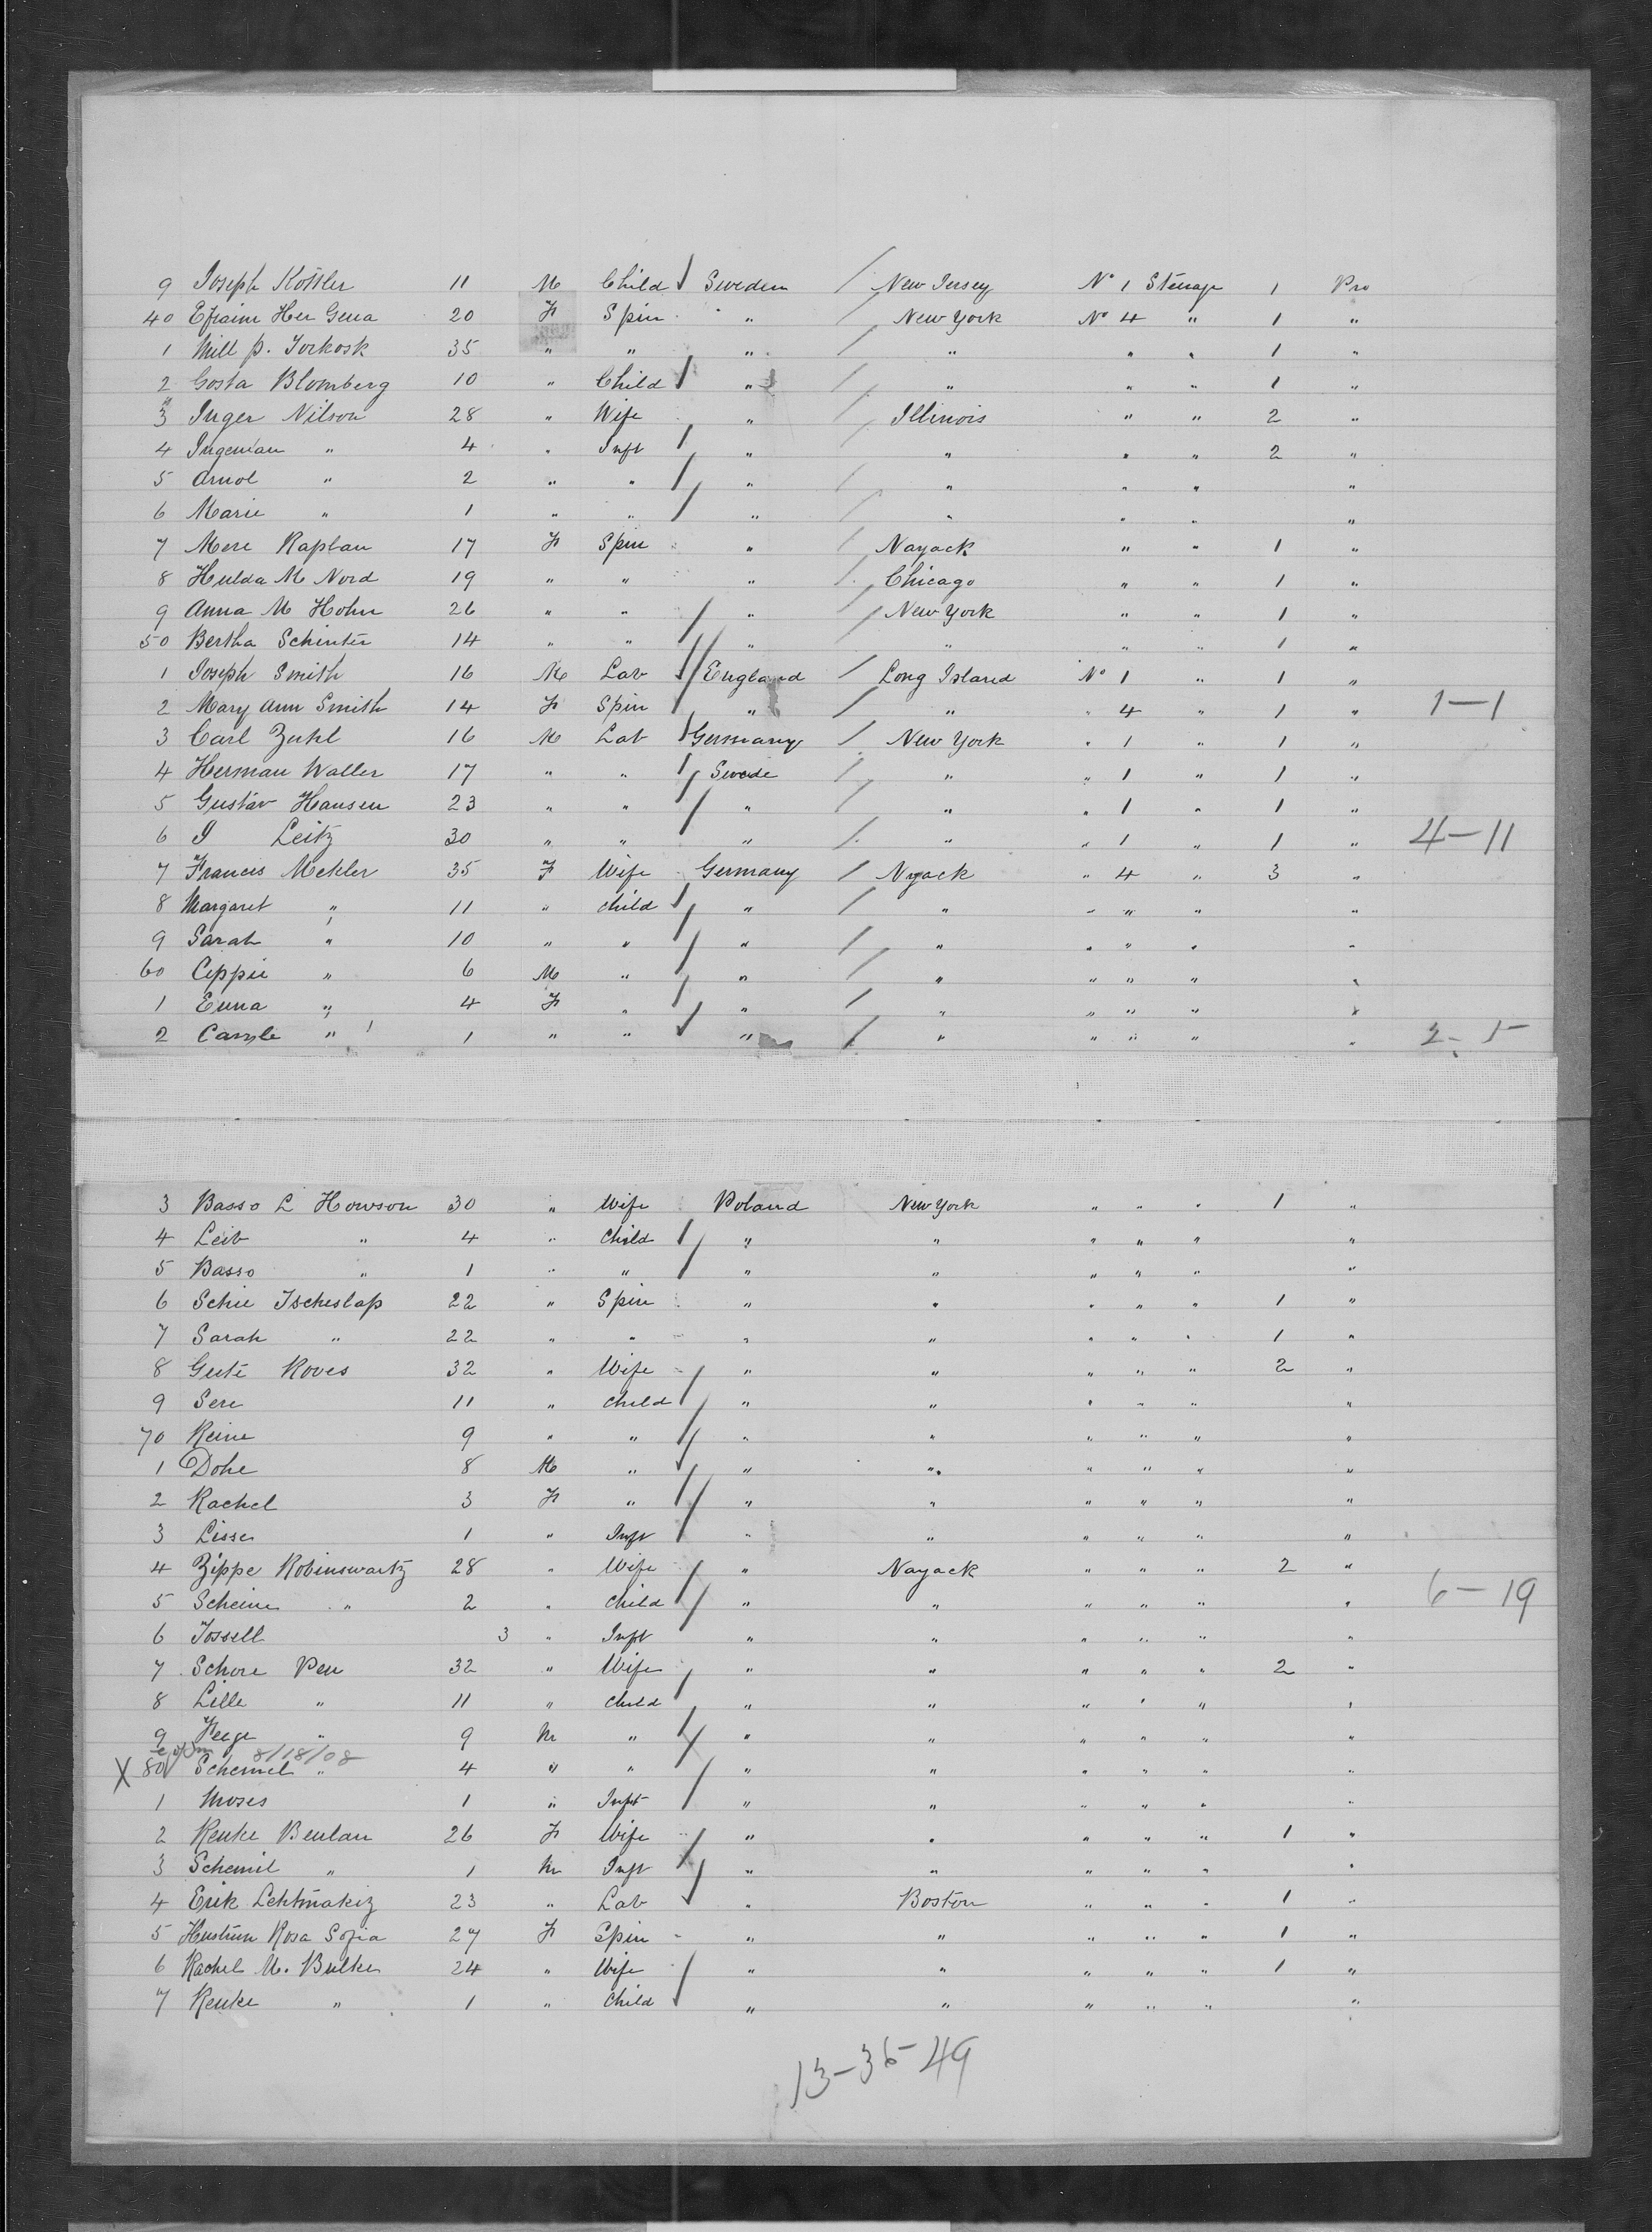 9 Joseph Kössler 11 M Child Sweden New Jersey No 1 Steerage 1 Pro
40 Efraim Her Gena 20 F Spin " New York No 4 " 1 "
1 Mill p. Jorkosk 35 " " " " " " 1 "
2 Gosta Blomberg 10 " Child " " " " 1 "
3 Inger Nilson 28 " Wife " Illinois " " 2 "
4 Ingeman " 4 " Inft " " " " 2 "
5 Arnol " 2 " " " " " " "
6 Marie " 1 " " " " " " "
7 Mere Kaplan 17 F Spin " Nayack " " 1 "
8 Hulda M Nord 19 " " " Chicago " " 1 "
9 Anna M Hohn 26 " " " New York " " 1 "
50 Bertha Schinter 14 " " " " " " 1 "
1 Joseph Smith 16 M Lab England Long Island No 1 " 1 "
2 Mary Ann Smith 14 F Spin " " " 4 " 1 " 1-1
3 Carl Zuhl 16 M Lab Germany New York " 1 " 1 "
4 Herman Waller 17 " " Swede " " 1 " 1 "
5 Gustav Hansen 23 " " " " " 1 " 1 "
6 J Leitz 30 " " " " " 1 " 1 " 4-11
7 Frances Mekler 35 F Wife Germany Nyack " 4 " 3 "
8 Margaret " 11 " child " " " " " "
9 Sarah " 10 " " " " " " " "
60 Ceppie " 6 M " " " " " " "
1 Enna " 4 F " " " " " " "
2 " 1 " " " " " " " " 2-5
3 Basso L Howson 30 " Wife Poland New York " " " 1 "
4 Leib " 4 " Child " " " " " "
5 Basso " 1 " " " " " " " "
6 Schie Ischeslap 22 " Spin " " " " " 1 "
7 Sarah " 22 " " " " " " " 1 "
8 Gute Roves 32 " Wife " " " " " 2 "
9 Sere 11 " child " " " " " "
70 Reine 9 " " " " " " " "
1 Dohe 8 M " " " " " " "
2 Rachel 3 F " " " " " " "
3 Lisse 1 " Inft " " " " " "
4 Zippe Robinswartz 28 " Wife " Nayack " " " 2 "
5 Scheine " 2 " child " " " " " " 6-19
6 Jossell 3 " Inft " " " " " "
7 Schore Pen 32 " Wife " " " " " 2 "
8 Lille " 11 " child " " " " " "
9 Feege " 9 M " " " " " " "
8/18/08
X 80 Schemel " 4 " " " " " " " "
1 Moses 1 " Inft " " " " " "
2 Renke Benlan 26 F Wife " " " " " 1 "
3 Schemil " 1 M Inft " " " " " "
4 Erik Lehtmakiz 23 " Lab " Boston " " " 1 "
5 Hustrun Rosa Sofia 27 F Spin " " " " " 1 "
6 Rachel M. Bulke 24 " Wife " " " " " 1 "
7 Renke " 1 " Child " " " " " "
13-36-49